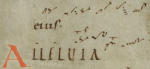 eius.
ALLELUIA